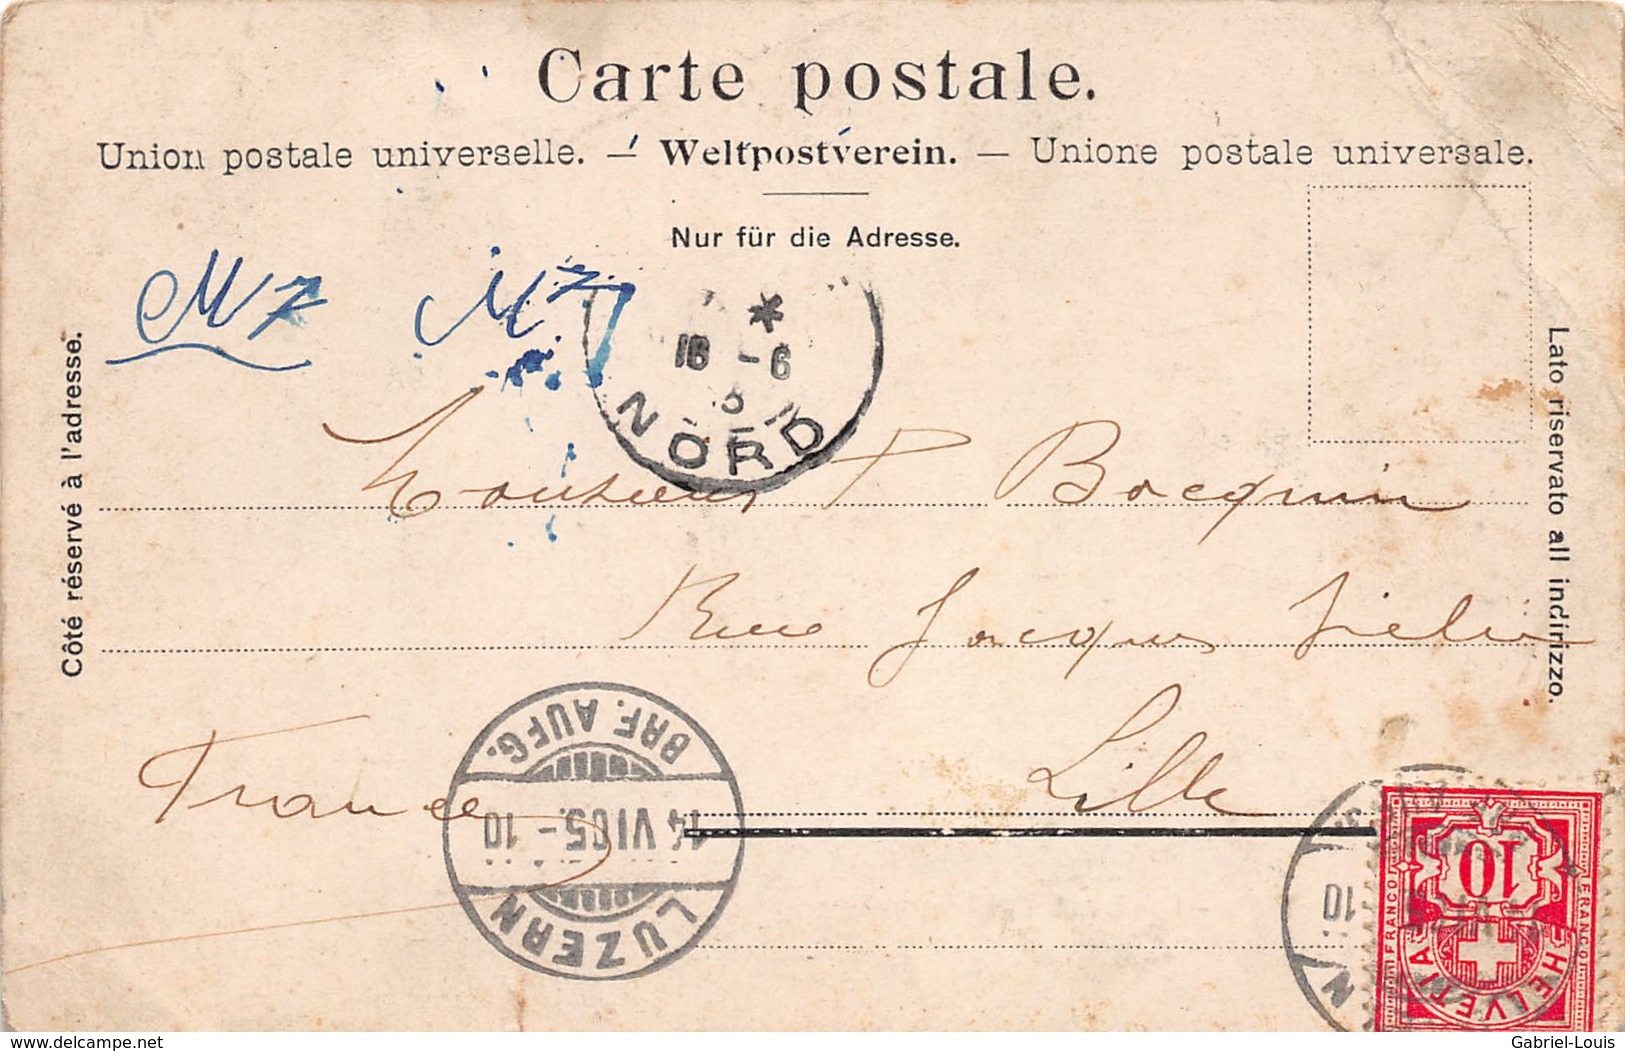 Carte postale.
Union postale universelle. — Weltpostverein. — Unione postale universale.
Nur für die Adresse.
Côté réservé à l'adresse.
Lato riservato all indirizzo.
M 7 M 7
* 
16 -6
NORD
Monsieur P Bocquin
Rue Jacquus
Lille
France
BRF. AUFG.
14 VI 05.-10
LUZERN
10
FRANCO FRANCO
HELVETIA
10
N
delcampe.net
Gabriel-Louis